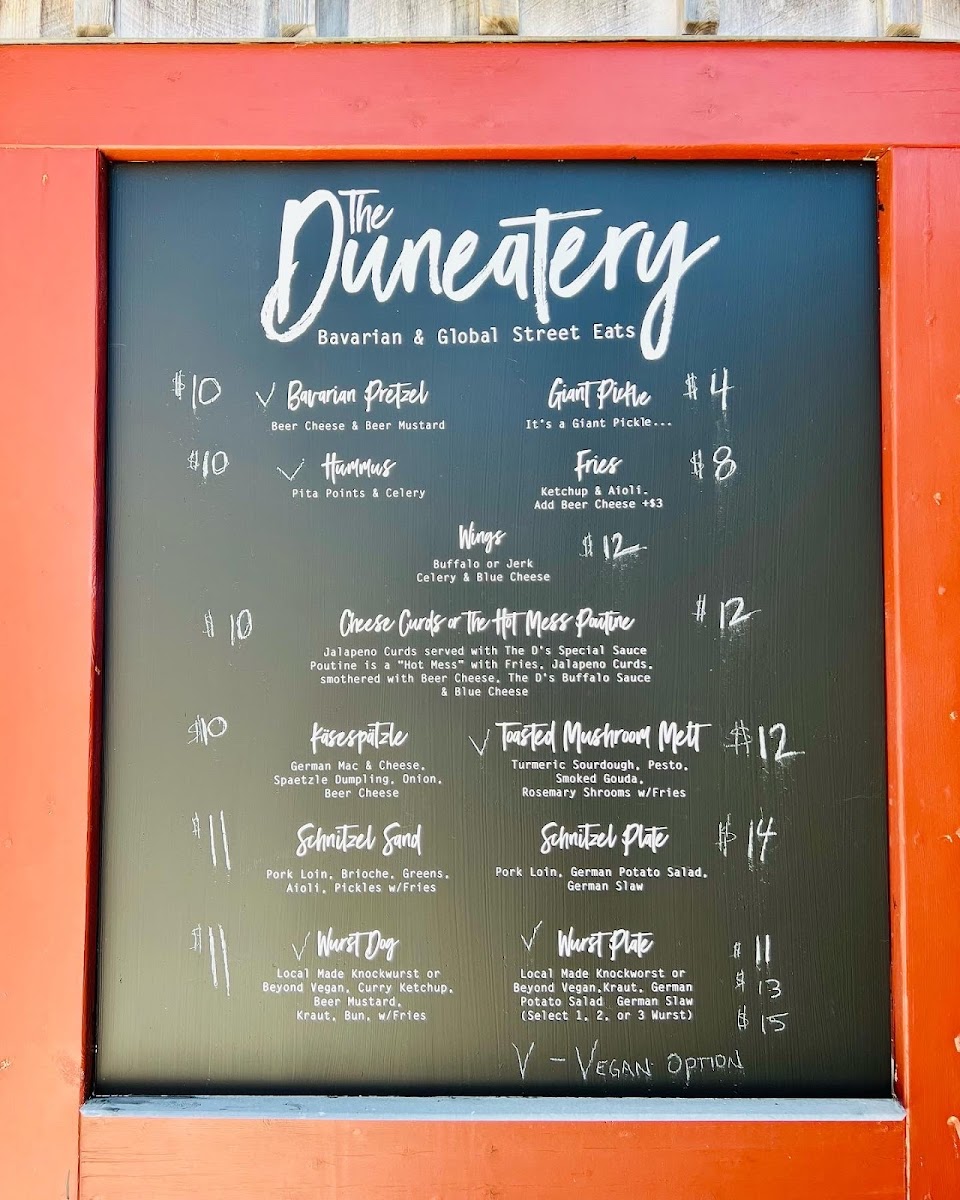 The
Duneatery
Bavarian & Global Street Eats
$10 V Bavarian Pretzel
Beer Cheese & Beer Mustard
Giant Pickle $4
It's a Giant Pickle...
$10 V Hummus
Pita Points & Celery
Fries $8
Ketchup & Aioli.
Add Beer Cheese +$3
Wings $12
Buffalo or Jerk
Celery & Blue Cheese
$10 Cheese Curds or The Hot Mess Poutine $12
Jalapeno Curds served with The D's Special Sauce
Poutine is a "Hot Mess" with Fries, Jalapeno Curds,
smothered with Beer Cheese, The D's Buffalo Sauce
& Blue Cheese
$10 Käsespätzle
German Mac & Cheese,
Spaetzle Dumpling, Onion,
Beer Cheese
V Toasted Mushroom Melt $12
Turmeric Sourdough, Pesto,
Smoked Gouda,
Rosemary Shrooms w/Fries
$11 Schnitzel Sand
Pork Loin, Brioche, Greens,
Aioli, Pickles w/Fries
Schnitzel Plate $14
Pork Loin, German Potato Salad,
German Slaw
$11 V Wurst Dog
Local Made Knockwurst or
Beyond Vegan, Curry Ketchup,
Beer Mustard,
Kraut, Bun, w/Fries
V Wurst Plate
Local Made Knockworst or
Beyond Vegan,Kraut, German
Potato Salad German Slaw
(Select 1, 2, or 3 Wurst)
$11
$13
$15
V - Vegan Option